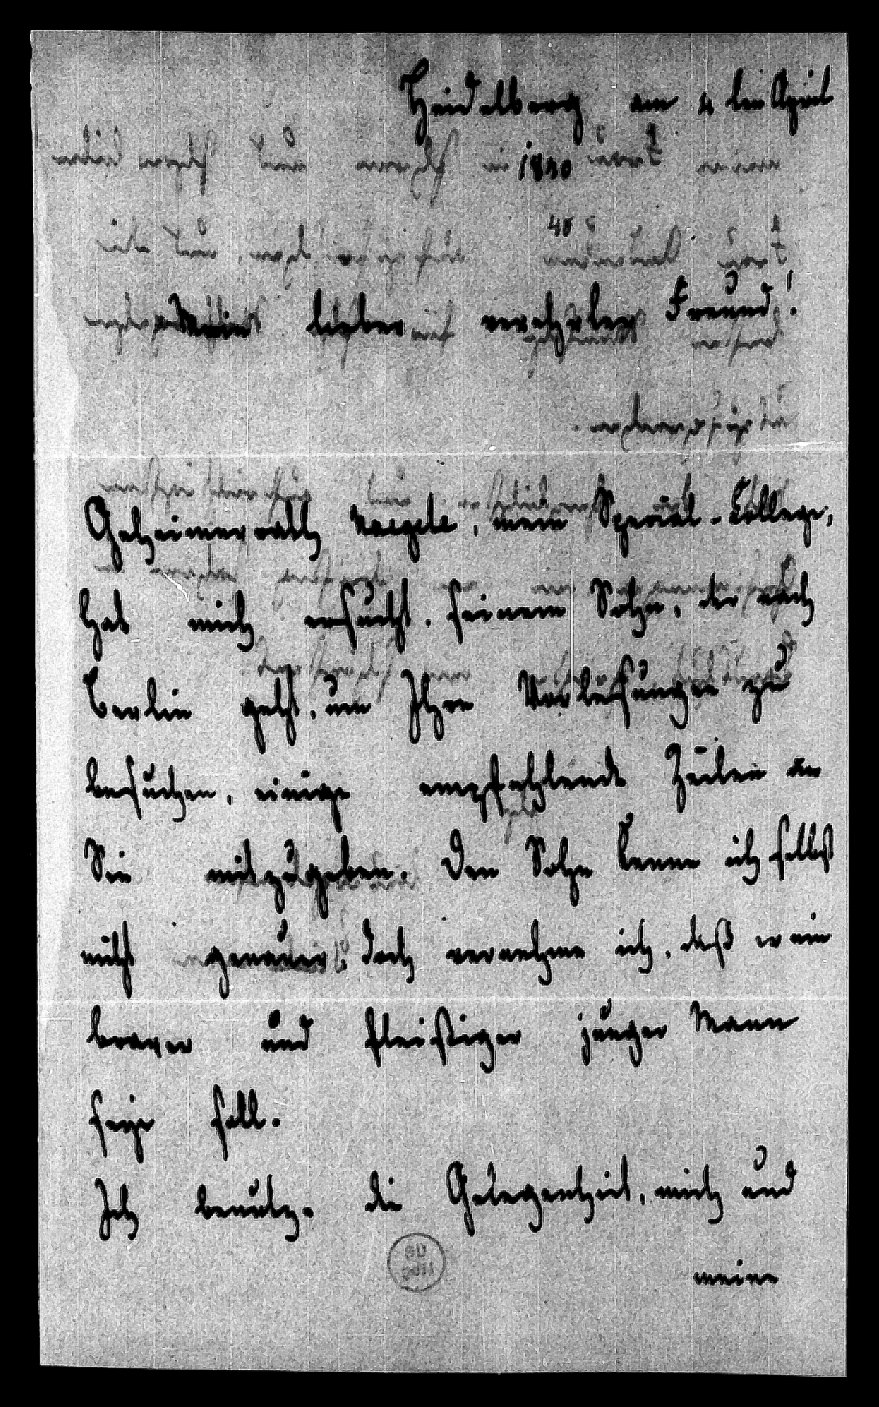 Heidelberg am 4ten April
1840
48
Mein lieber verehrter Freund!
Geheimerrath Naegele, mein Special-College,
hat mich ersucht, seinem Sohne, der nach
Berlin geht, um Ihre Vorlesungen zu
besuchen, einige empfehlende Zeilen an
Sie mitzugeben. Den Sohn kenne ich selbst
nicht genauer, doch vernehme ich, daß er ein
braver und fleißiger junger Mann
seyn soll.
Ich benutze die Gelegenheit, mich und
meine